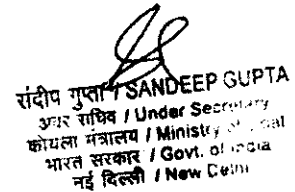 संदीप गुप्ता / SANDEEP GUPTA
अवर सचिव / Under Secretary
कोयला मंत्रालय / Ministry of
भारत सरकार / Govt. of India
नई दिल्ली / New Delhi